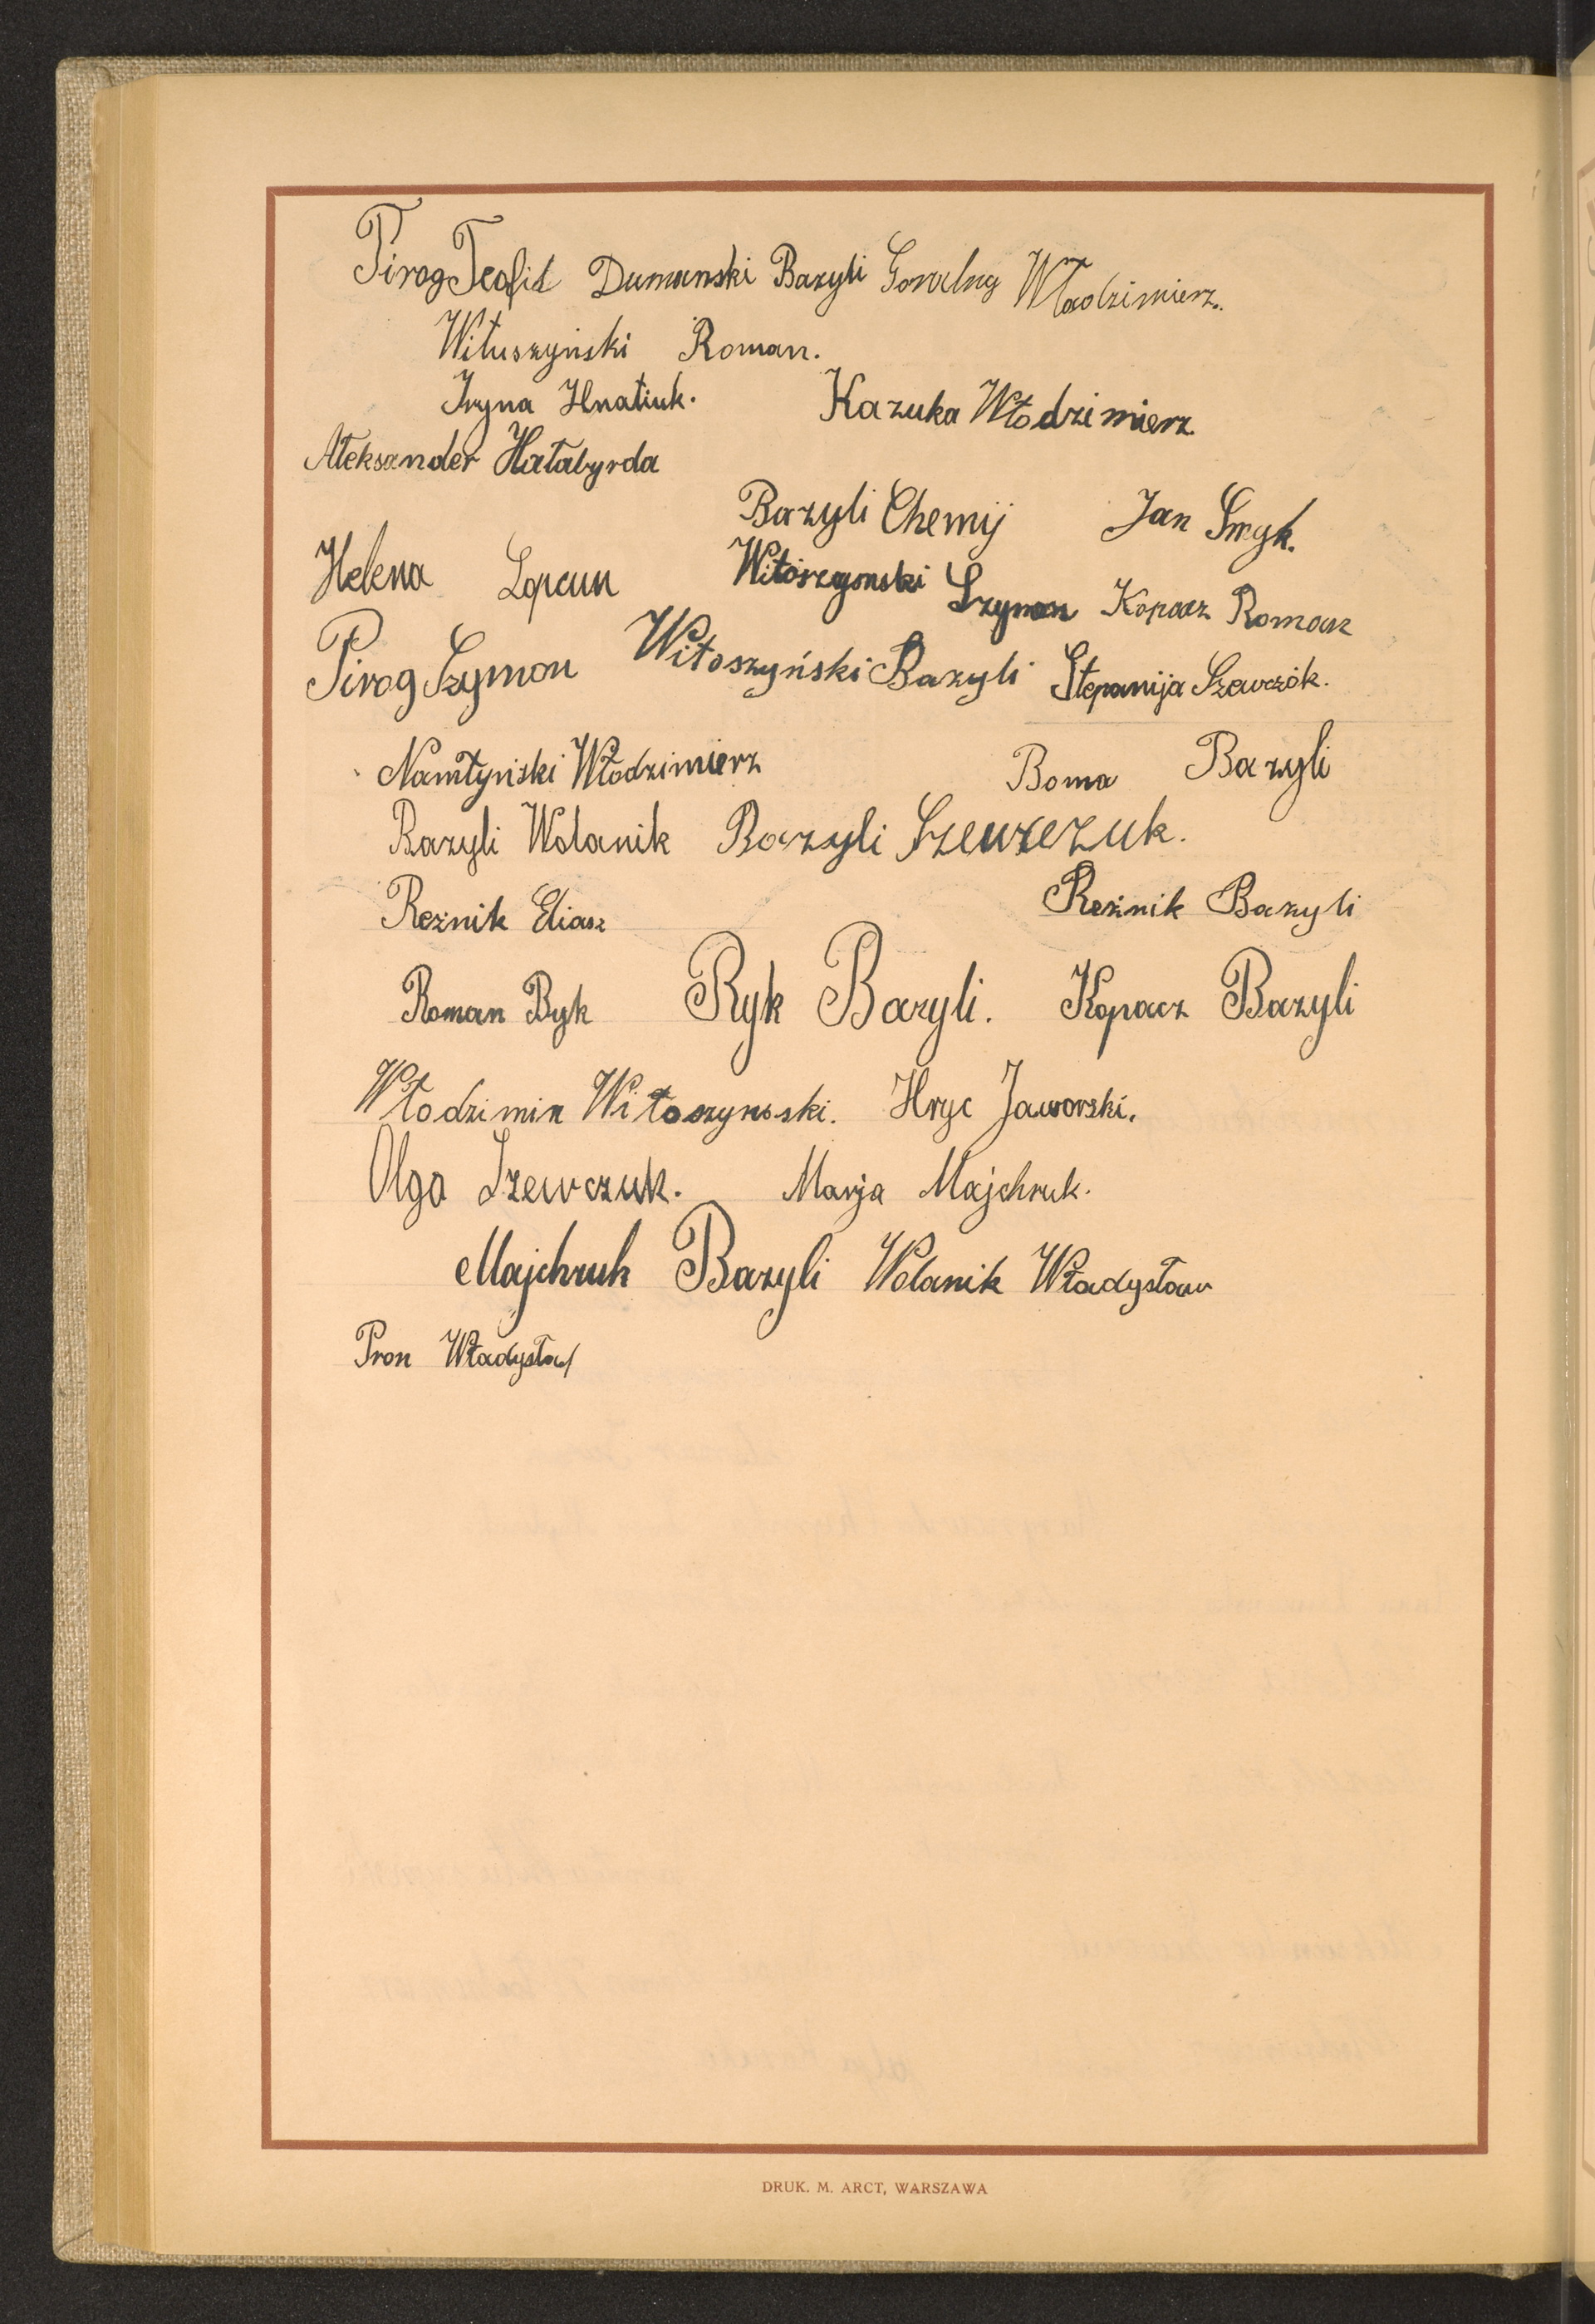 Pirog Teofil Dumanski Bazyli Goralny Włodzimierz.
Wituszyński Roman.
Iryna Hnatiuk. Kazuka Włodzimierz
Aleksander Hałabyrda
Bazyli Chemij Jan Smyk.
Helena Łopcun Witoszynski Szymon Kopacz Roman
Pirog Szymon Witoszyński Bazyli Stepanija Szewczók.
Namłyński Włodzimierz Boma Bazyli
Bazyli Wolanik Bazyli Szewczuk.
Reznik Eliasz Reźnik Bazyli
Roman Byk Ryk Bazyli. Kopacz Bazyli
Włodzimir Witoszynsski. Hryc Jaworski.
Olga Szewczuk. Marja Majchruk.
Majchruk Bazyli Wolanik Władysław
Pron Władysław
DRUK. M. ARCT, WARSZAWA